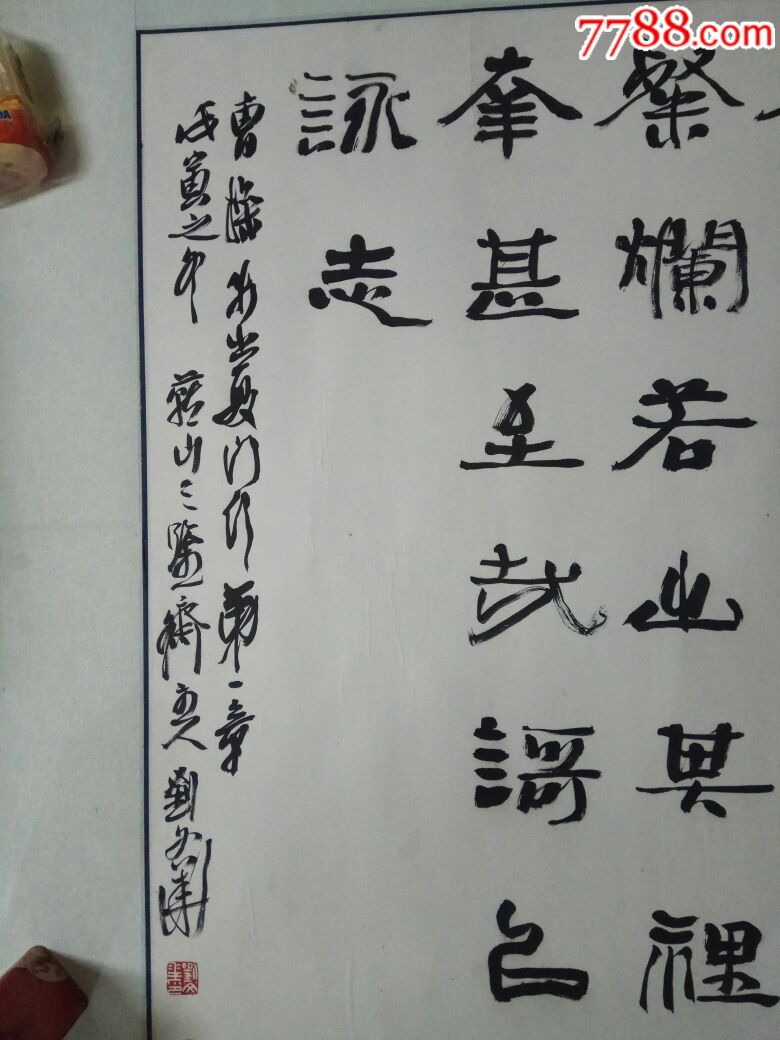 7788.com
粲爛若出其裡
𡴘甚至哉謌㠯
詠志
曹操步出夏門行第一章
戊寅之年 藍山三鑒齋主人劉